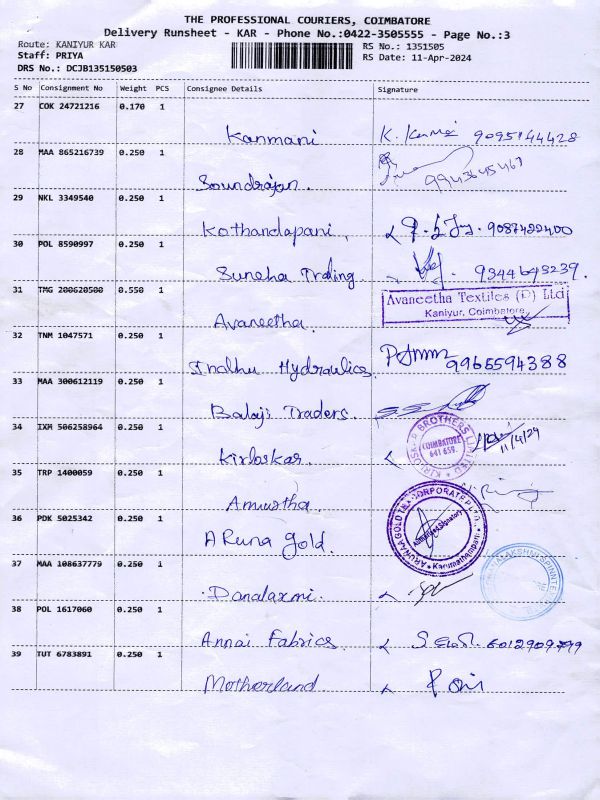 THE PROFESSIONAL COURIERS, COIMBATORE
Delivery Runsheet - KAR - Phone No.:0422-3505555 - Page No.:3
Route: KANIYUR KAR RS No.: 1351505
Staff: PRIYA RS Date: 11-Apr-2024
DRS No.: DCJB135150503
S No Consignment No Weight PCS Consignee Details Signature
27 COK 24721216 0.170 1
Kanmani K. 9095144428
28 MAA 865216739 0.250 1
Soundrajan. 9943645467
29 NKL 3349540 0.250 1
Kothandapani, 9087422400
30 POL 8590997 0.250 1
Suneha Trading 9344643239.
31 TMG 200620500 0.550 1
Avaneetha Textiles (P) Ltd
Kaniyur, Coimbatore
Avaneetha.
32 TNM 1047571 0.250 1
Hydraulics 9965594388
33 MAA 300612119 0.250 1
Balaji Traders.
34 IXM 506258964 0.250 1
KIRLOSKAR BROTHERS LIMITED
COIMBATORE
641 659.
11/4/24
Kirloskar.
35 TRP 1400059 0.250 1
36 PDK 5025342 0.250 1
ARuna gold.
ARUNAA GOLD TEX CORPORATE P LTD.
Authorised Signatory
Karumathampatti
37 MAA 108637779 0.250 1
Danalaxmi.
38 POL 1617060 0.250 1
Annai Fabrics. 6012909799
39 TUT 6783891 0.250 1
Motherland